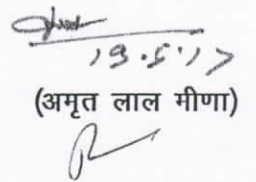 19.5.17
(अमृत लाल मीणा)